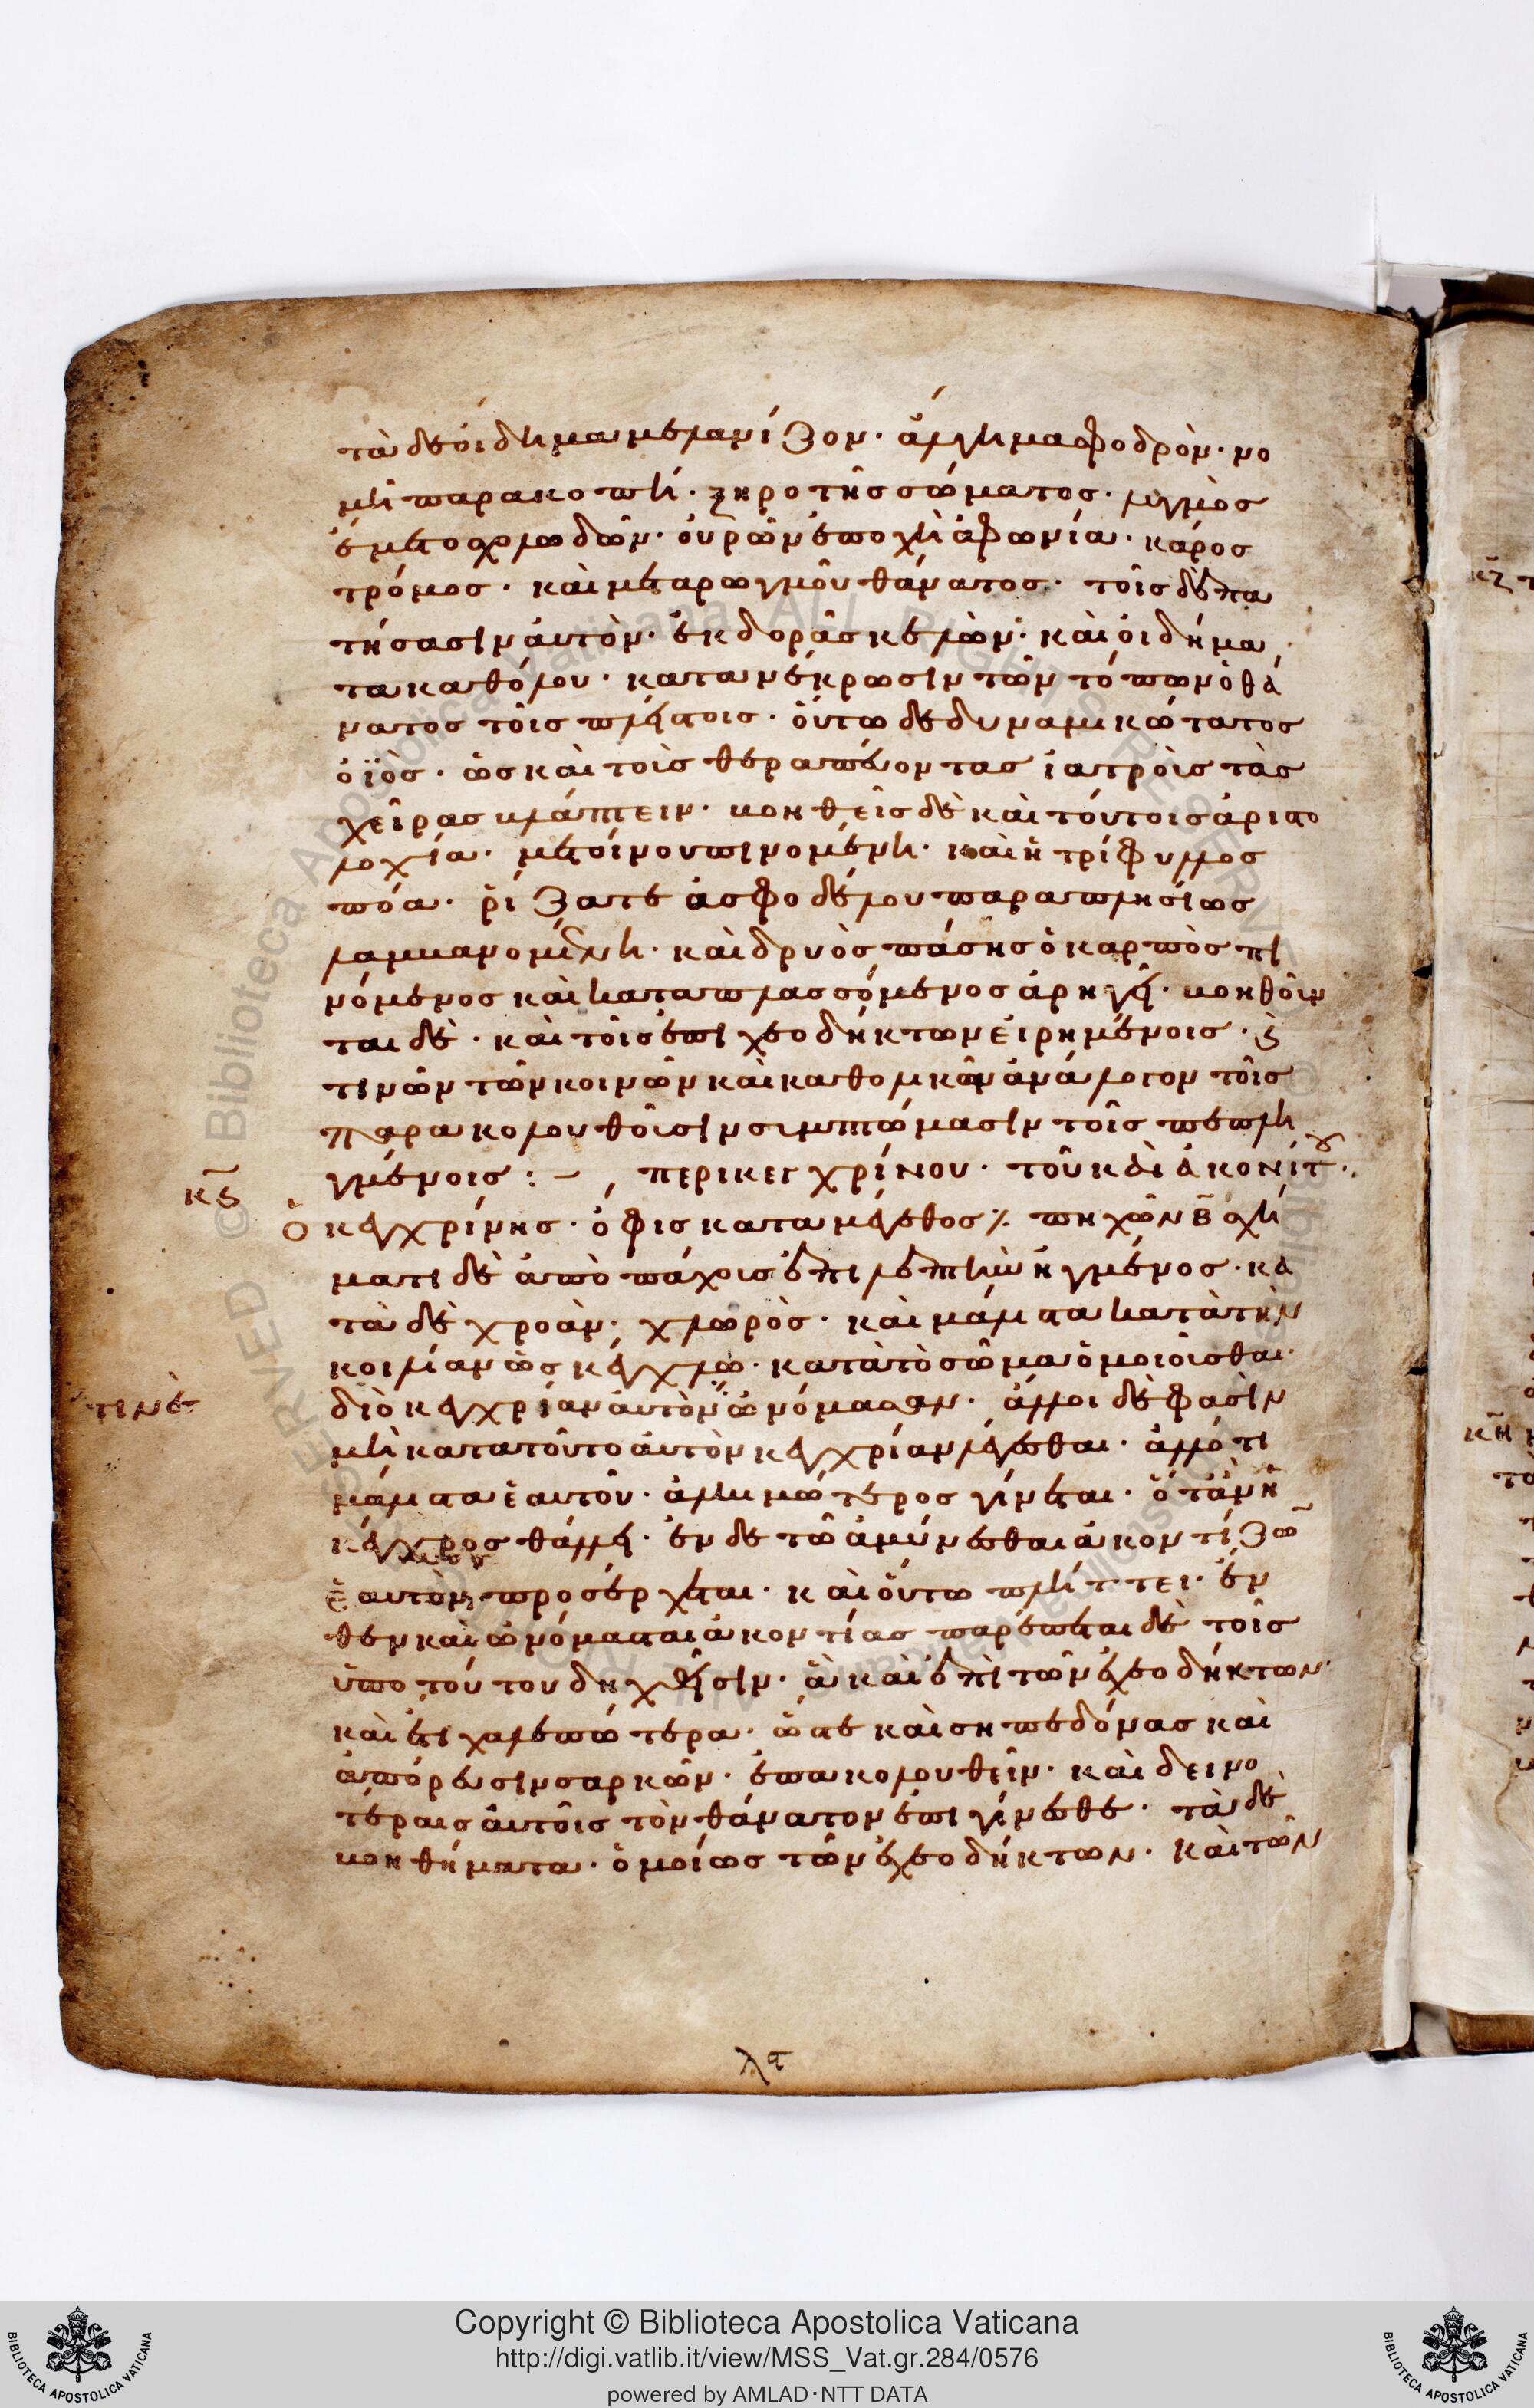 τὰ δὲ οἴδημα μελανίζον· ἄλγημα σφοδρὸν· νο
μὴ παρακοπὴ· ξηρότης σώματος· λυγμὸς
ἔμετος χολωδῶν· οὔρων ἐποχὴ ἀφωνία· κάρος
τρόμος· καὶ μετὰ ρωγμοῦ θάνατος· τοῖς δὲ πα
τήσασιν αὐτὸν· ἐκδορὰ σκελῶν· καὶ οἰδήμα
τα καθόλου· κατὰ νέκρωσιν τῶν τόπων ὁ θά
νατος τοῖς πλείστοις· οὕτω δὲ δυναμικώτατος
ὁ ἰὸς· ὡς καὶ τοῖς θεραπεύοντας ἰατροῖς τὰς
χεῖρας βλάπτειν· βοηθεῖς δὲ καὶ τούτοις ἀριστο
λοχία· μετ οίνου πινομένη· καὶ ἡ τρίφυλλος
πόα· ρίζα τε ἀσφοδέλου παραπλησίως
λαμβανομένη· καὶ δρυὸς πάσης ὁ καρπὸς πι
νόμενος καὶ καταπλασσόμενος ἀρήγει· βοηθοῦν
ται δὲ· καὶ τοῖς ἐπὶ ἐχεοδήκτων εἰρημένοις· ἐκ
τινῶν τῶν κοινῶν καὶ καθολικῶν ἀνάλογον τοῖς
παρακολουθοῦσιν συμπτώμασιν τοῖς πεπλη
γμένοις :– περι κεγχρίνου· τοῦ καὶ ἀκονίτου·
κϛ
Ὁ κεγχρίνης· ὄφις κατὰ μέγεθος πηχῶν β̄ σχή
ματι δὲ ἀπὸ πάχους ἐπὶ λεπτὸν ἠγμένος· κα
τὰ δὲ χροὰν· χλωρὸς· καὶ μάλιστα κατὰ τὴν
κοιλίαν ὡς κέγχρω· κατὰ τὸ σῶμα ὁμοιοῦσθαι·
τινὲς
διὸ κεγχρίαν αὐτὸν ὠνόμασαν· ἄλλοι δὲ φασὶν
μὴ κατὰ τοῦτο αὐτὸν κεγχρίαν λέγεσθαι· ἀλλ ὅτι
μάλιστα ἑαυτοῦ· ἀλκιμώτερος γίνεται· ὅτ ἂν ἡ
κέγχρος θάλλει· ἐν δὲ τῶ ἀμύνεσθαι ἀκοντίζων
ἑαυτὸν προσέρχεται· καὶ οὕτω πλήττει· ἔν
θεν καὶ ὠνόμασται ἀκοντίας παρέπεται δὲ τοῖς
ὑπο τούτου δηχθεῖσιν· ἃ καὶ ἐπὶ τῶν ἐχεοδήκτων·
καὶ ἔτι χαλεπώτερα· ὥστε καὶ σηπεδόνας καὶ
ἀπόρευσιν σαρκῶν· ἐπακολουθεῖν· καὶ δεινο
τέραις αὐτοῖς τὸν θάνατον ἐπιγίνεσθε· τὰ δὲ
βοηθήματα· ὁμοίως τῶν ἐχεοδήκτων· καὶ τῶν
Copyright © Biblioteca Apostolica Vaticana
http://digi.vatlib.it/view/MSS_Vat.gr.284/0576
powered by AMLAD·NTT DATA
BIBLIOTECA APOSTOLICA VATICANA
BIBLIOTECA APOSTOLICA VATICANA